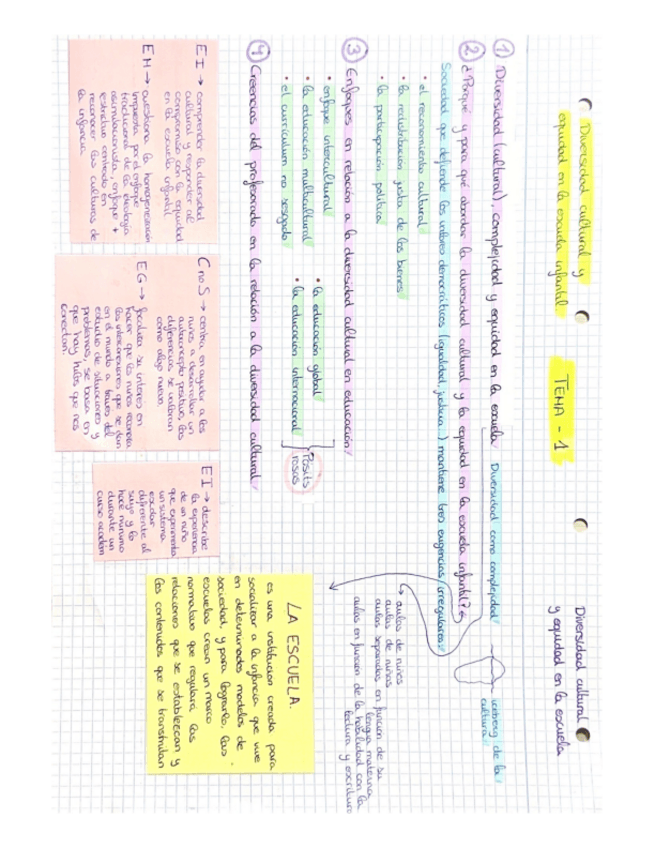 Diversidad cultural y
equidad en la escuela infantil.
TEMA - 1
Diversidad cultural
y equidad en la escuela
① Diversidad (cultural), complejidad y equidad en la escuela
Diversidad como complejidad
iceberg de la
cultura
② ¿Porqué y para qué abordar la diversidad cultural y la equidad en la escuela infantil?
Sociedad que defiende los valores democráticos (igualdad, justicia...) mantiene tres exigencias irregulares
• el reconocimiento cultural
• la redistribución justa de los bienes
• la participación política
→ aulas de niños
aulas de niñas
aulas separadas en función de su
lengua materna
aulas en función de la habilidad con la
lectura y escritura
③ Enfoques en relación a la diversidad cultural en educación
• enfoque intercultural
• la educación multicultural
• el currículum no sesgado
• la educación global
• la educación internacional
Pósits
rosas
④ Creencias del profesorado en la relación a la diversidad cultural
LA ESCUELA.
es una institución creada para
socializar a la infancia que vive
en determinados modelos de
sociedad, y para lograrlo, las
escuelas crean un marco
normativo que regulará las
relaciones que se establezcan y
los contenidos que se transmitan
EI → comprender la diversidad
cultural y responder al
compromiso con la equidad
en la escuela infantil
EM → cuestiona la homogeneización
impuesta por el enfoque
tradicional de la ideología
asimilacionista, enfoque +
restrictivo centrado en
reconocer las culturas de
la infancia.
CnoS → centra en ayudar a los
niños a desarrollar un
autoconcepto positivo, las
diferencias se valoran
como algo nuevo.
EG → focaliza su interés en
hacer que los niños reconozca
las interconexiones que se dan
en el mundo a través del
estudio de situaciones y
problemas, se basa en
que hay hilos que nos
conectan.
EI → describe
la experiencia
de un niño
que experimenta
un sistema
escolar
diferente al
suyo y lo
hace mínimo
durante un
curso académ